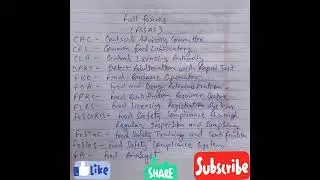 Full forms
(FSSAI)
CAC - Central Advisory Committee
CFL - Common Food Laboratory
CLA - Central Licensing Authority
DART - Detect Adulteration with Rapid Test
FBO - Food Business Operator
FDA - Food and Drug Administration
FFRC - Food Fortification Resource Centre
FLRS - Food Licensing Registration System
FOSCORIS - Food Safety Compliance through
Regular Inspection and Sampling
FOSTAC - Food Safety Training and Certification
FOSCOS - Food Safety Compliance System
FA - Food Analyst
Like
SHARE
Subscribe